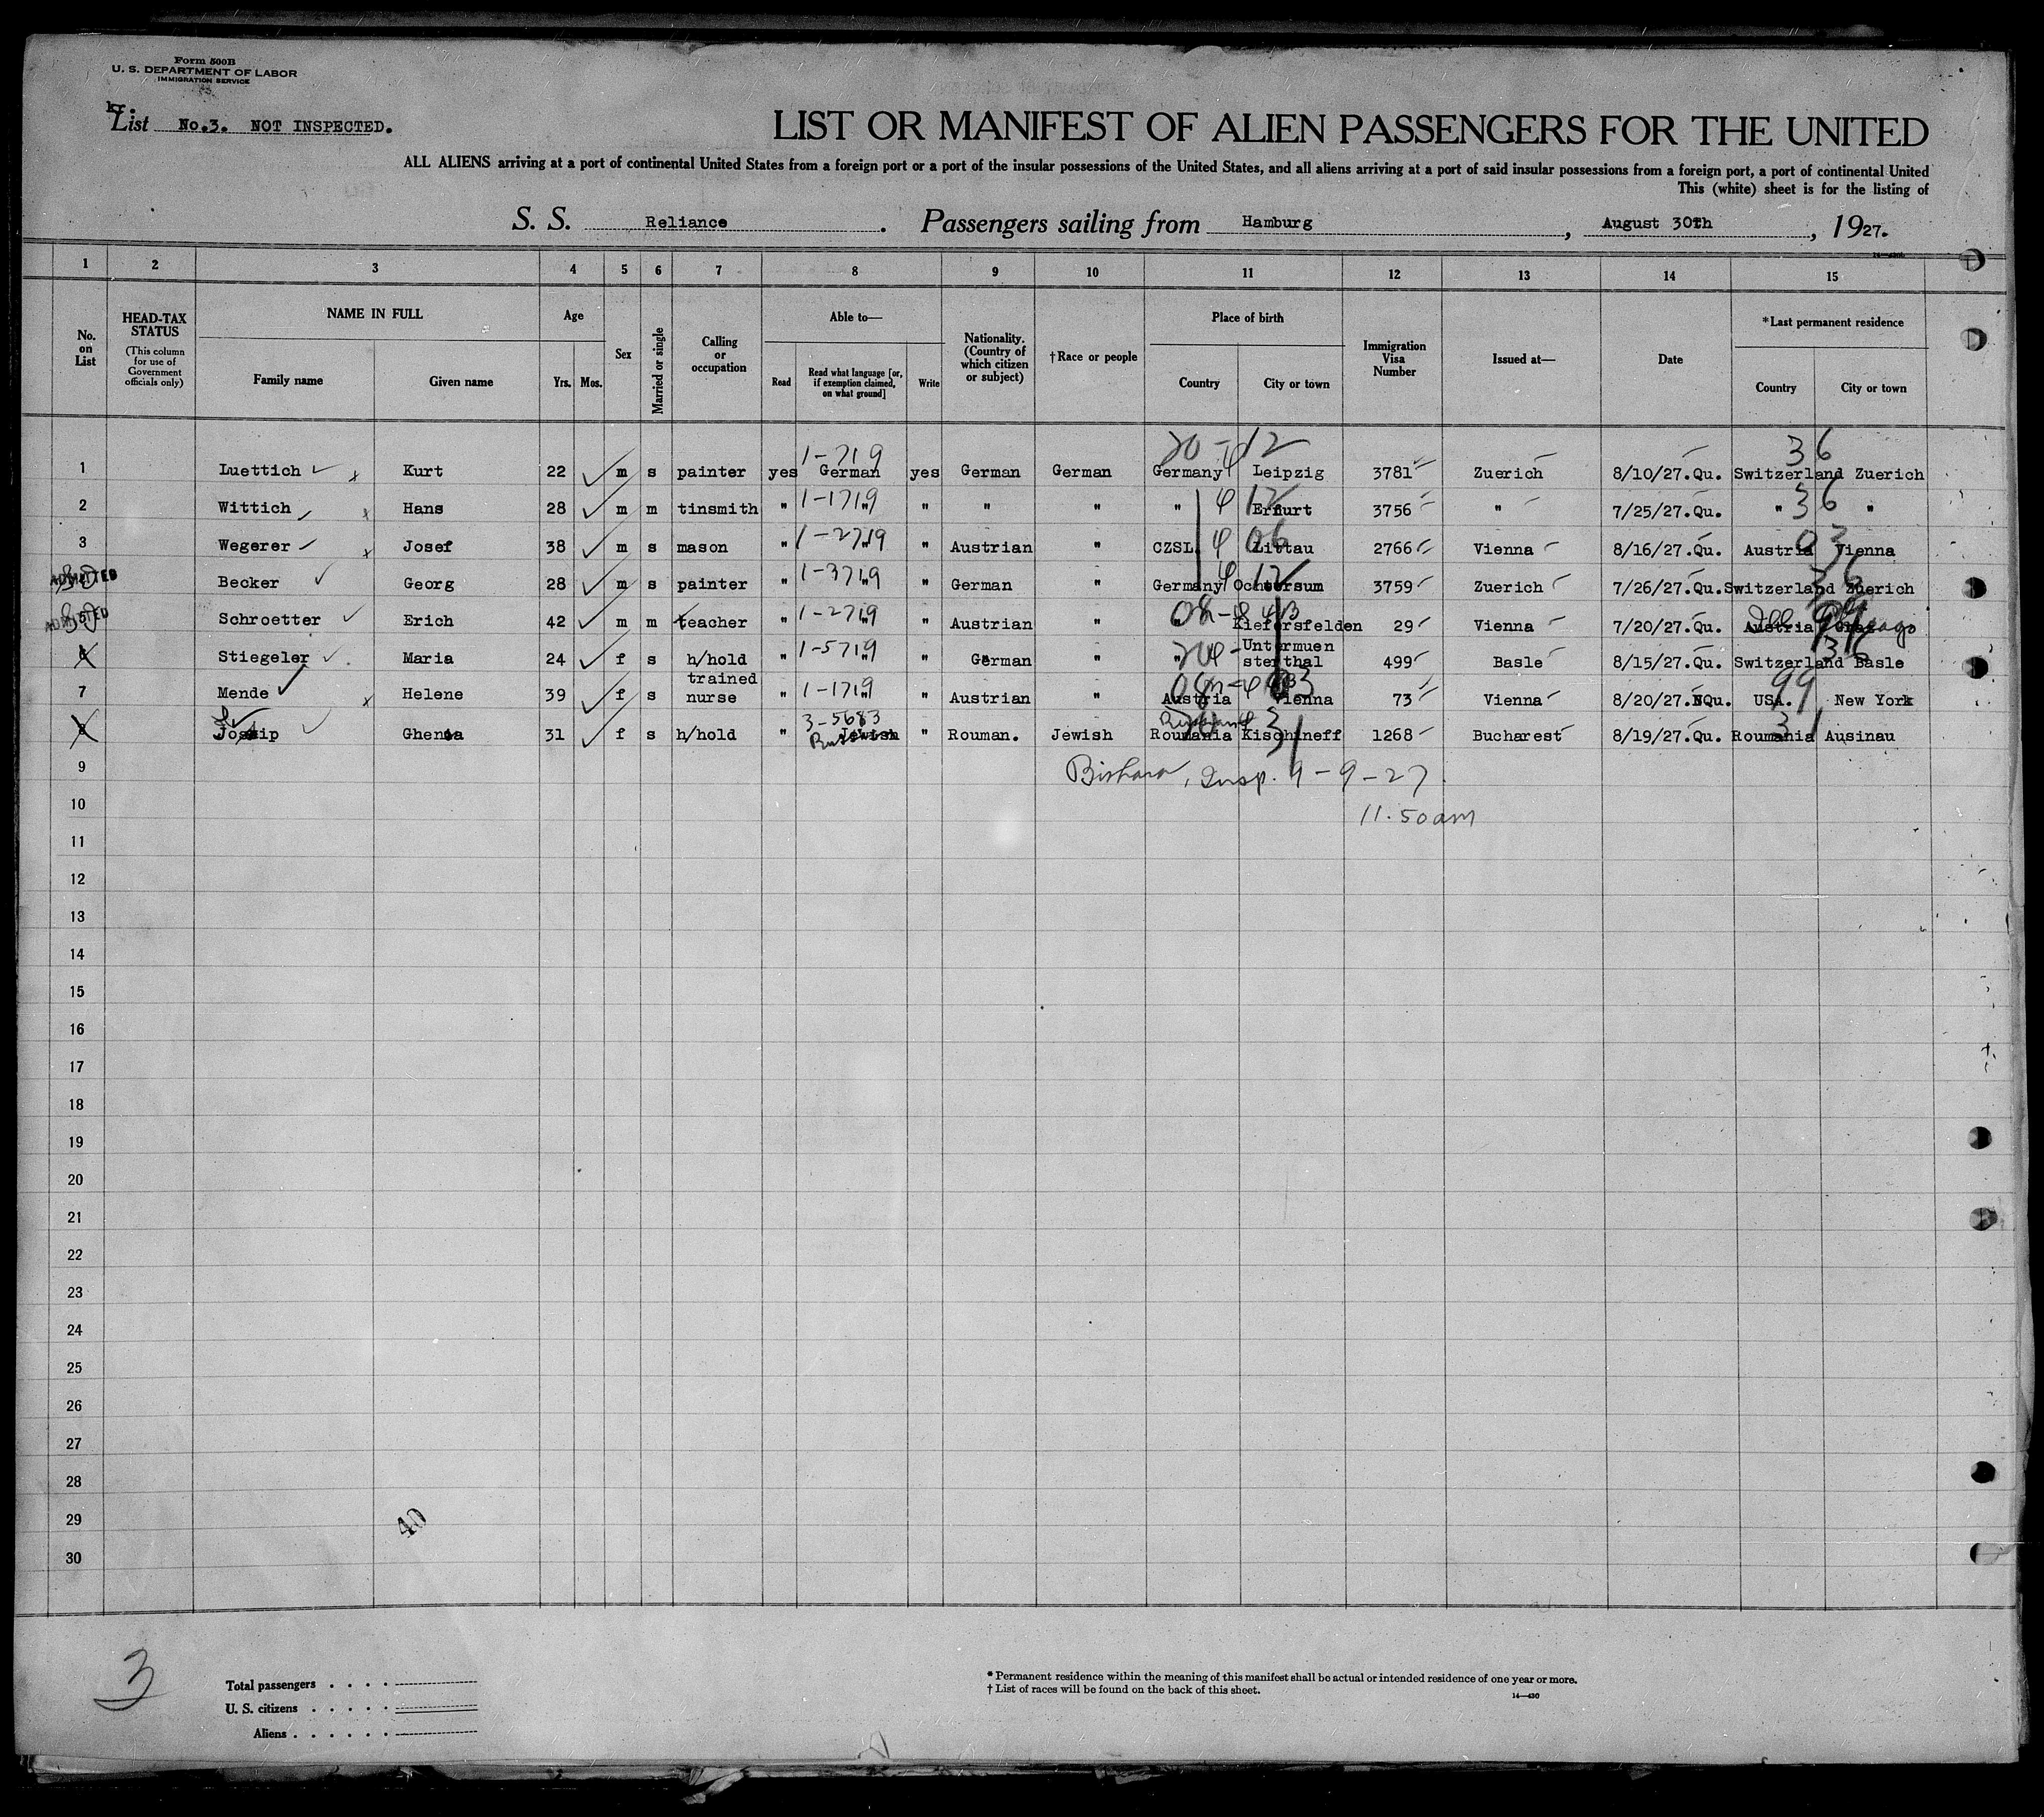 Form 500B
U. S. DEPARTMENT OF LABOR
IMMIGRATION SERVICE
List No.3. NOT INSPECTED.
LIST OR MANIFEST OF ALIEN PASSENGERS FOR THE UNITED
ALL ALIENS arriving at a port of continental United States from a foreign port or a port of the insular possessions of the United States, and all aliens arriving at a port of said insular possessions from a foreign port, a port of continental United
This (white) sheet is for the listing of
S. S. Reliance. Passengers sailing from Hamburg, August 30th, 1927.
1 2 3 4 5 6 7 8 9 10 11 12 13 14 15
No. on List HEAD-TAX STATUS (This column for use of Government officials only) NAME IN FULL Family name Given name Age Yrs. Mos. Sex Married or single Calling or occupation Able to— Read Read what language [or, if exemption claimed, on what ground] Write Nationality. (Country of which citizen or subject) †Race or people Place of birth Country City or town Immigration Visa Number Issued at— Date *Last permanent residence Country City or town
20 12
1-719 36
1 Luettich x Kurt 22 m s painter yes German yes German German Germany Leipzig 3781 Zuerich 8/10/27.Qu. Switzerland Zuerich
1-1719 12 36
2 Wittich x Hans 28 m m tinsmith " " " " " " Erfurt 3756 " 7/25/27.Qu. " "
1-2719 06 03
3 Wegerer x Josef 38 m s mason " " " Austrian " CZSL. Littau 2766 Vienna 8/16/27.Qu. Austria Vienna
1-3719 12 36
ADMITTED Becker Georg 28 m s painter " " " German " Germany Ochtersum 3759 Zuerich 7/26/27.Qu. Switzerland Zuerich
1-2719 08 99
ADMITTED Schroetter Erich 42 m m teacher " " " Austrian " " Kiefersfelden 29 Vienna 7/20/27.Qu. Austria Ill. Chicago
1-5719 20 36
6 Stiegeler Maria 24 f s h/hold " " " German " " Untermuen stenthal 499 Basle 8/15/27.Qu. Switzerland Basle
1-1719 08 99
7 Mende x Helene 39 f s trained nurse " " " Austrian " Austria Vienna 73 Vienna 8/20/27.NQu. USA. New York
3-5683 Russian 31 31
8 Ghensa 31 f s h/hold " Jewish " Rouman. Jewish Roumania Kischineff 1268 Bucharest 8/19/27.Qu. Roumania Ausinau
9
Bishara, Insp. 9-9-27
10
11.50am
11
12
13
14
15
16
17
18
19
20
21
22
23
24
25
26
27
28
29
40
30
3
Total passengers
U. S. citizens
Aliens
* Permanent residence within the meaning of this manifest shall be actual or intended residence of one year or more.
† List of races will be found on the back of this sheet.
14—430